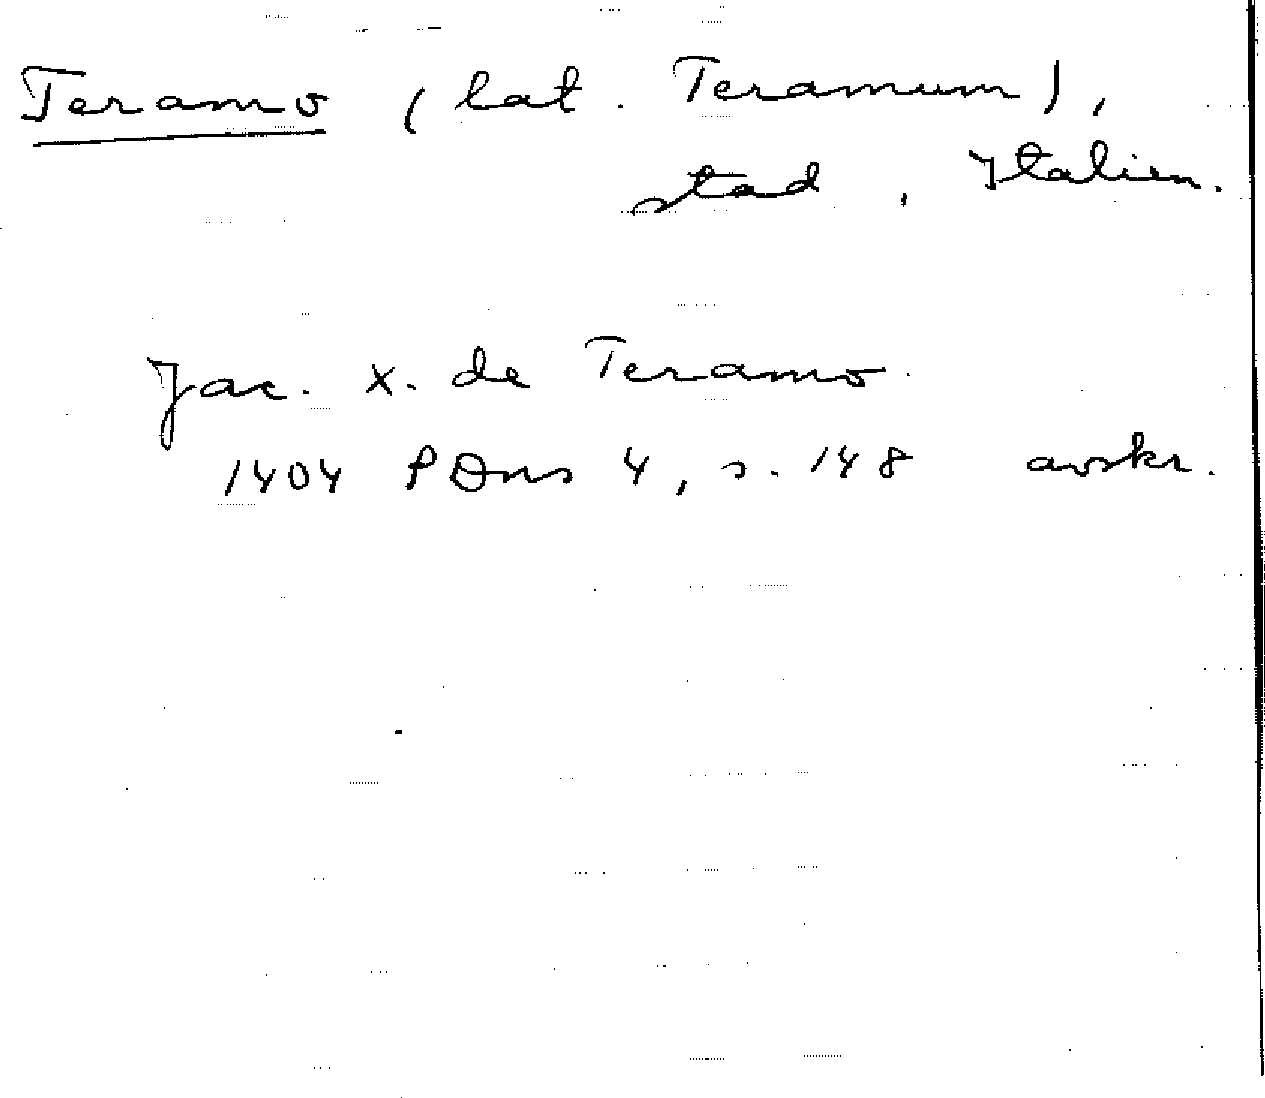 Teramo (lat. Teramum),
stad, Italien.
Jac. x. de Teramo
1404 PDns 4, s. 148 avskr.